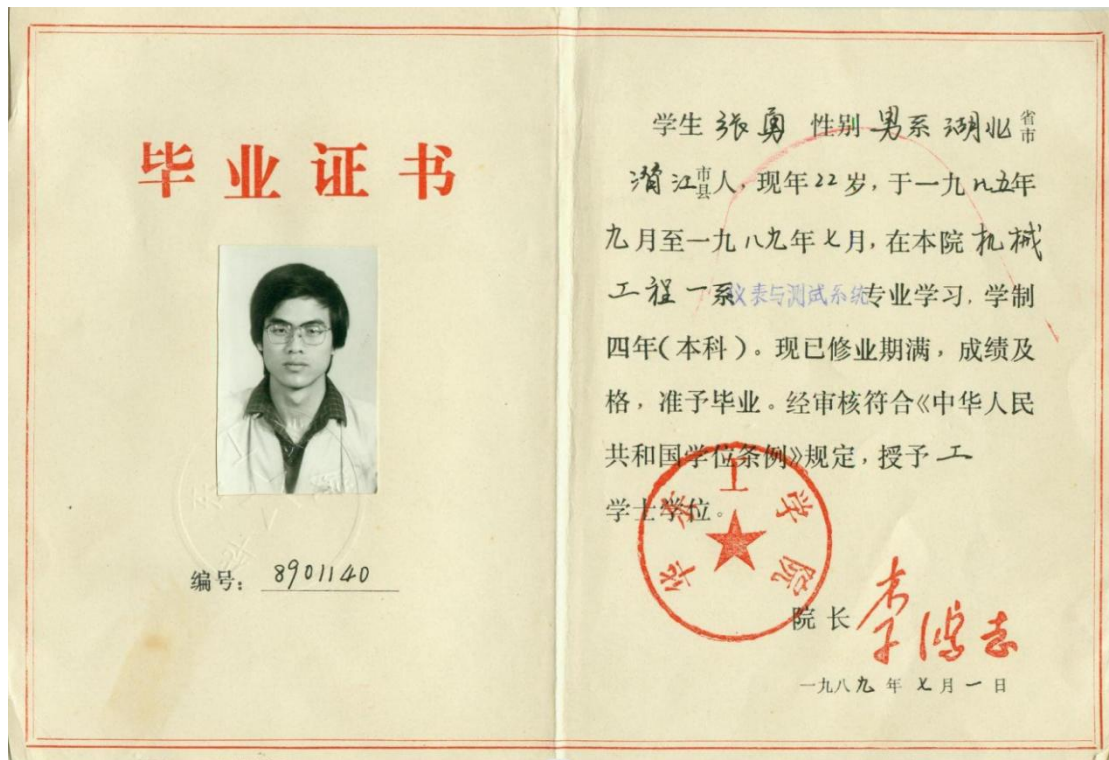 毕业证书
编号: 8901140
学生 张勇 性别 男系 湖北 省市
潜江 市县人, 现年22岁, 于一九八五年
九月至一九八九年七月, 在本院 机械
工程一系仪表与测试系统专业学习, 学制
四年(本科)。现已修业期满, 成绩及
格, 准予毕业。经审核符合《中华人民
共和国学位条例》规定, 授予 工
学士学位。
华东工学院
院长 李鸿志
一九八九年七月一日